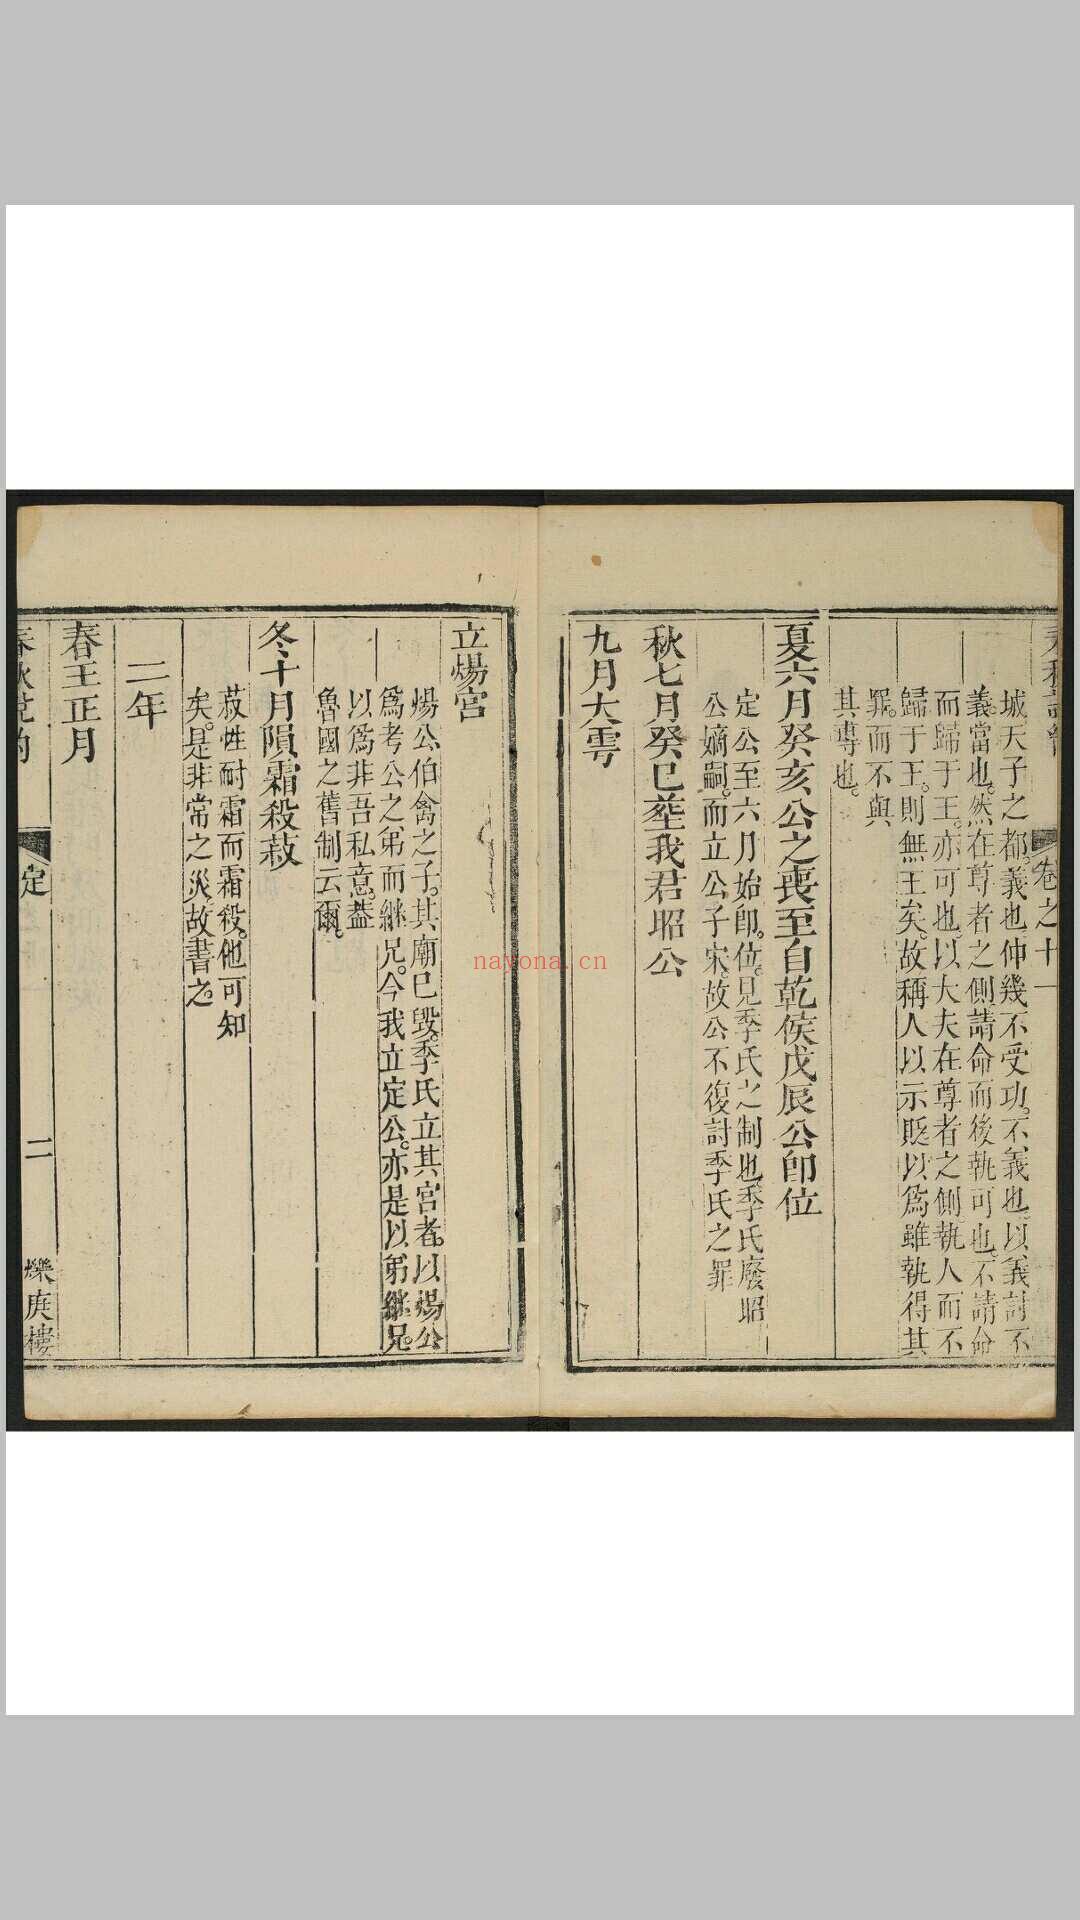 卷之十一
城天子之都義也仲幾不受功不義也以義討不
義當也然在尊者之側請命而後執可也不請命
而歸于王亦可也以大夫在尊者之側執人而不
歸于王則無王矣故稱人以示貶以爲雖執得其
罪而不與
其專也
夏六月癸亥公之喪至自乾侯戊辰公即位
定公至六月始即位見季氏之制也季氏廢昭
公嫡嗣而立公子宋故公不復討季氏之罪
秋七月癸巳葬我君昭公
九月大雩
立煬宮
煬公伯禽之子其廟已毀季氏立其宮者以煬公
爲考公之弟而継兄今我立定公亦是以弟継兄
以爲非吾私意蓋
魯國之舊制云爾
冬十月隕霜殺菽
菽性耐霜而霜殺他可知
矣是非常之災故書之
二年
春王正月
定
二
爍庚樓
nayona.cn